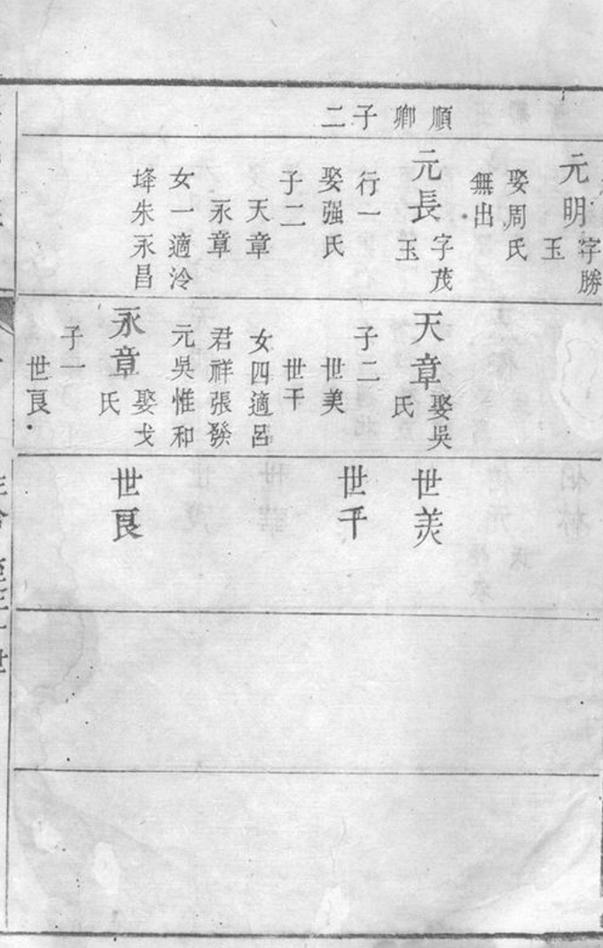 順卿子二
元明字勝玉
娶周氏
無出
元長字茂玉
行一
娶强氏
子二
天章
永章
女一適泠
埄朱永昌
天章娶吳氏
子二
世美
世干
女四適呂
君祥張發
元吳惟和
永章娶戈氏
子一
世良
世美
世干
世良